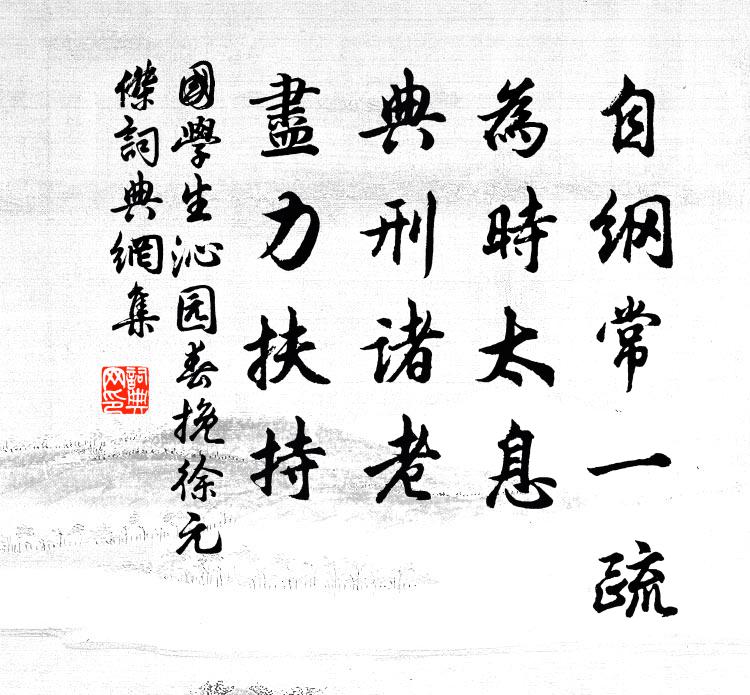 自綱常一疏
為時太息
典刑諸老
盡力扶持
國學生沁园春挽徐元
傑詞典網集
詞典
网印